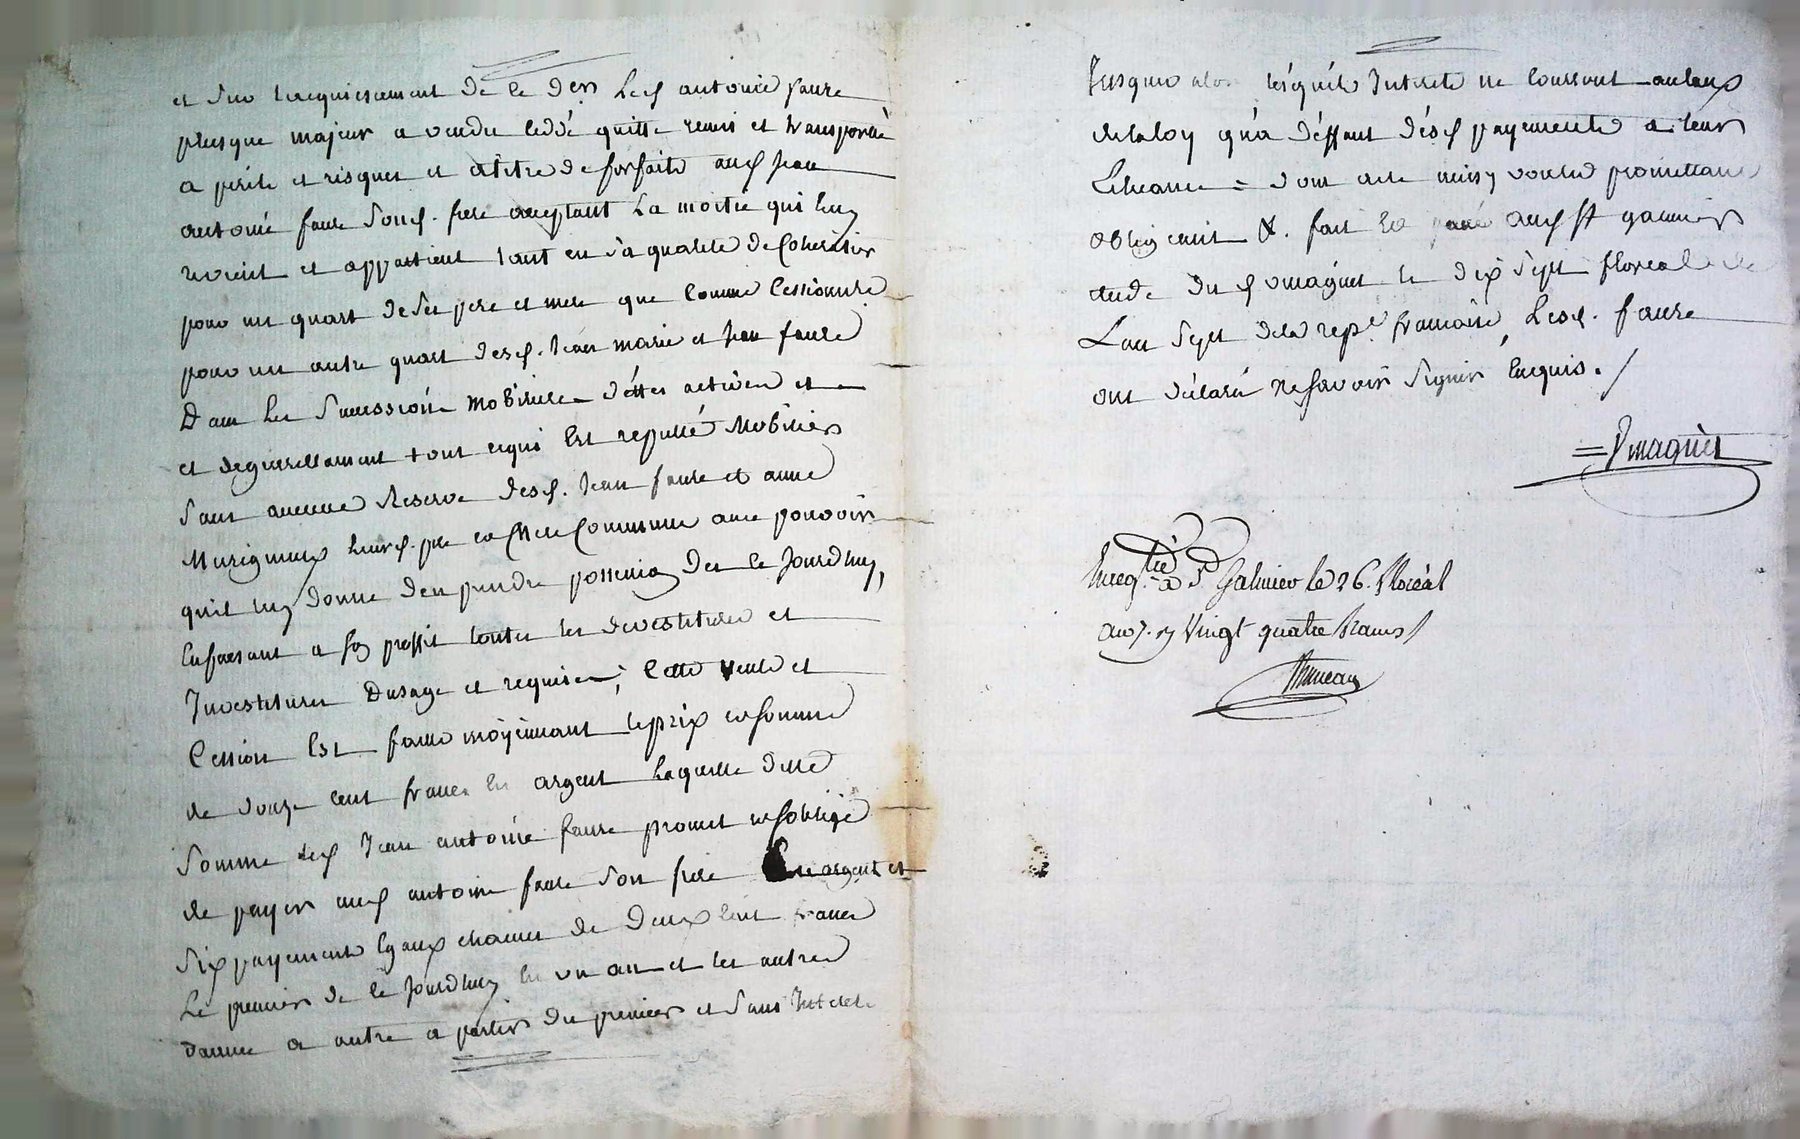 et sur le requiesement de ce der led. antoine faure
plusque majeur a vendu ceddé quitte remis et transporté
a perils et risques et atitre de forfaite aud jean
antoine faure soud. frere acceptant La moitie qui luy
revient et appartient tant en sa qualité de Coheritier
pour un quart de ses pere et mere que Comme Cessionnire
pour un autre quart desd. Jean marie et jean faure
Dans les successions mobiliere dettes actives et
et degenerallement tout cequi Est reputté Mobilier
sans aucune Reserve desd. Jean faure et anne
Marignieux leursd. pere et Mere Communs avec pouvoir
quil luy donne den prendre possession des ce jourdhuy,
Enfaisant a son proffit toutes les devestitures et
Investitures Dusage et requises, Cette vente et
Cession Est faitte moyennant leprix et somme
de douze cent francs en argent Laquelle ditte
somme led Jean antoine faure promet et soblige
de payer aud antoine faure son frere En argent et
six payements Egaux chacun de Deux Cent francs
Le premier de ce jourdhuy en un an et les autres
dannee a autre a partir du premier et sans Interet
Jusques alors lesquels Interets ne Courront autaux
delaloy qu'a deffaut desd payements a leur
Echeance = dont acte ainsy voulu promettant
obligeant &. fait et passé aud St galmier
etude du d vmagnet le dix sept floreal
Lan sept dela repe. francoise, Lesd. faure
ont déclaré ne savoir signer Enquis. /
= Vmagnet
Enregtré. a St Galmier le 26. floréal
an 7. ry Vingt quatre francs /